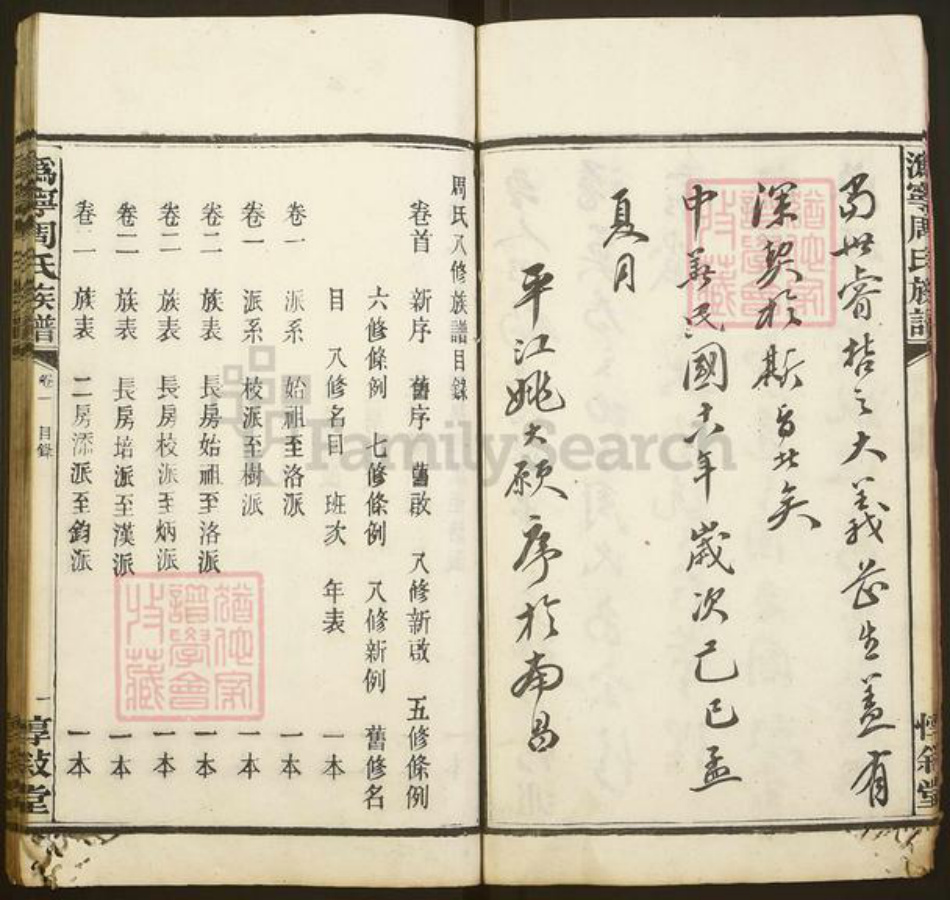 為世睿哲之大義茲生蓋有
深契於斯旨北矣
中華民國十八年歲次己巳孟
夏月
平江姚大願序於南昌
溈寧周氏族譜
惇敘堂
周氏八修族譜目錄
卷首 新序 舊序 舊啟 八修新啟 五修條例
六修條例 七修條例 八修新例 舊修名
目 八修名目 班次 年表 一本
卷一 派系 始祖至洛派 一本
卷一 派系 校派至樹派 一本
卷二 族表 長房始祖至洛派 一本
卷二 族表 長房校派至炳派 一本
卷二 族表 長房培派至漢派 一本
卷二 族表 二房添派至鈞派 一本
溈寧周氏族譜
卷一 目錄
一
惇敘堂
猶他家譜學會收藏
猶他家譜學會收藏
FamilySearch